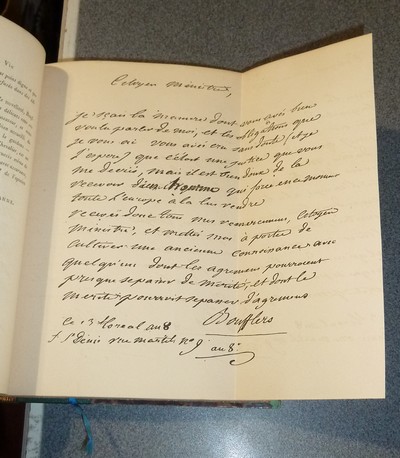 Citoyen ministre,
je scai la maniere dont vous avés bien
voulu parler de moi, et les obligations que
je vous ai vous avés cru sans doute (et je
l'espere) que c'étoit une justice que vous
me deviés, mais il est bien doux de la
recevoir d'un homme qui force en ce moment
toute l'europe à la lui rendre
recevés donc tous mes remerciemens, Citoyen
ministre, et mettés moi à portée de
cultiver une ancienne connoissance avec
quelqu'un dont les agremens pouroient
presque se passer de merite, et dont le
merite pouroit se passer d'agremens
Boufflers
ce 13 floreal an 8
f. St Denis rue martel nº 9
an 8.
Vie